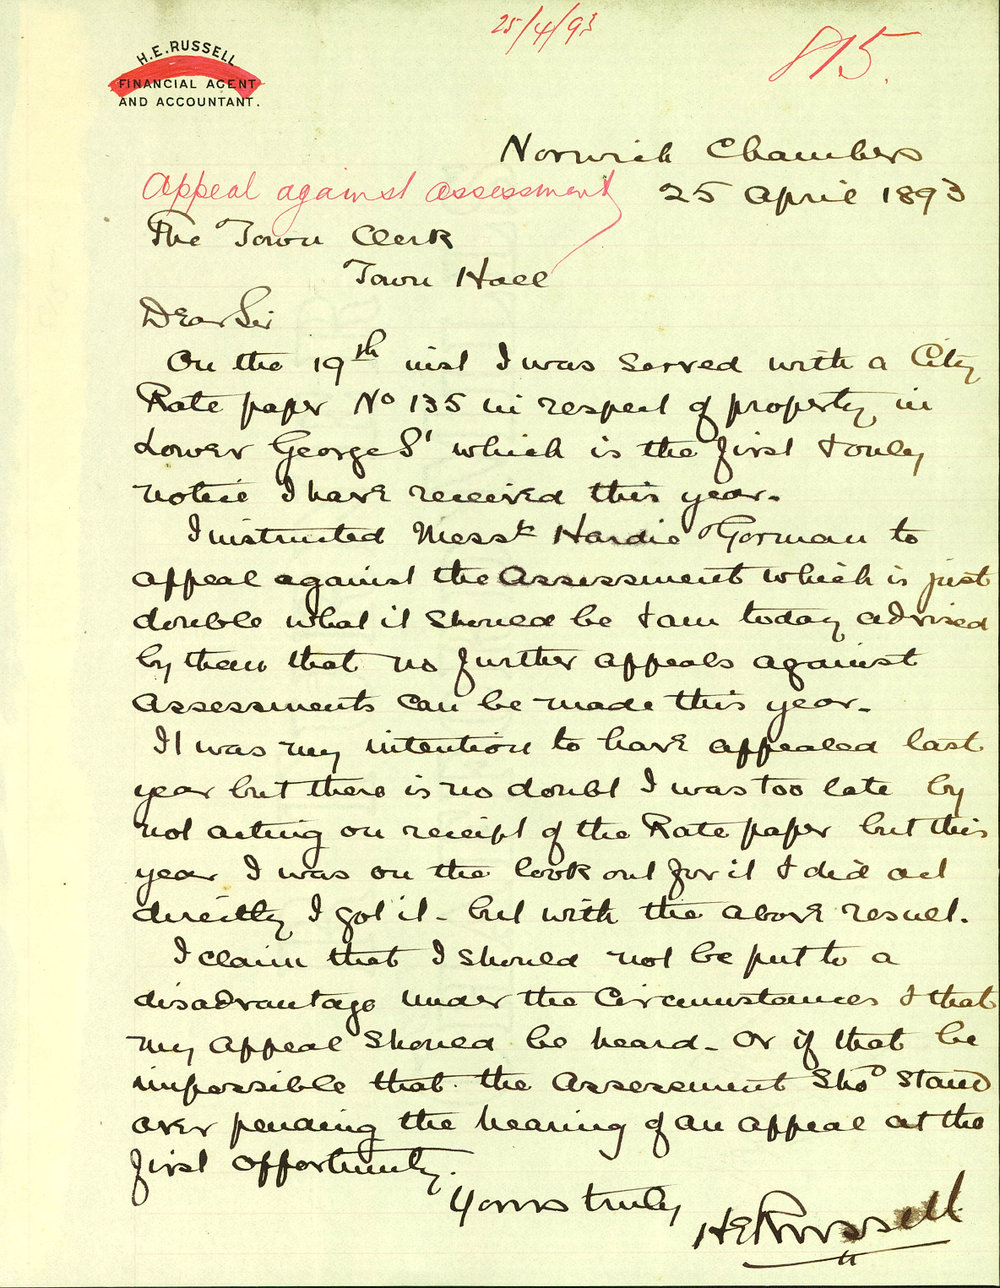 25/4/93
815.
H.E. RUSSELL
FINANCIAL AGENT
AND ACCOUNTANT.
Norwich Chambers
Appeal against assessment
25 April 1893
The Town Clerk
Town Hall
Dear Sir
On the 19th inst I was served with a City
Rate paper No 135 in respect of property in
Lower George St which is the first & only
notice I have received this year.
I instructed Messrs Hardie & Gorman to
appeal against the Assessment which is just
double what it should be & am today advised
by them that no further appeals against
Assessments can be made this year.
It was my intention to have appealed last
year but there is no doubt I was too late by
not acting on receipt of the Rate paper but this
year I was on the look out for it & did act
directly I got it - but with the above result.
I claim that I should not be put to a
disadvantage under the Circumstances & that
my Appeal should be heard - Or if that be
impossible that the Assessment Shod stand
over pending the hearing of an appeal at the
first opportunity.
Yours truly
HERussell